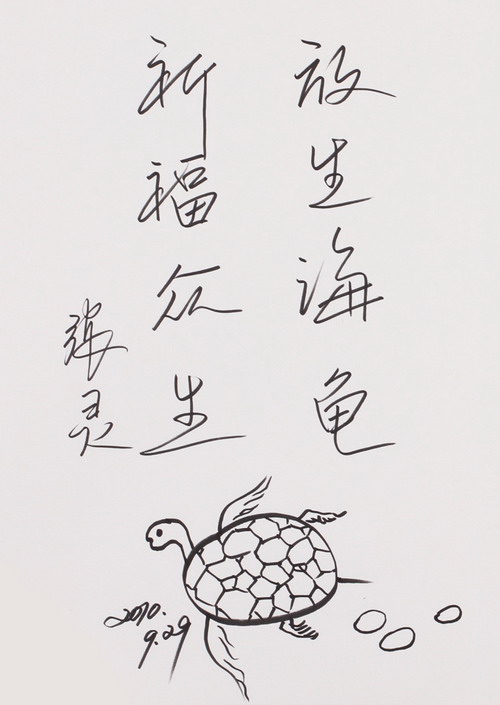 放生海龟
祈福众生
张灵
2010.
9.29